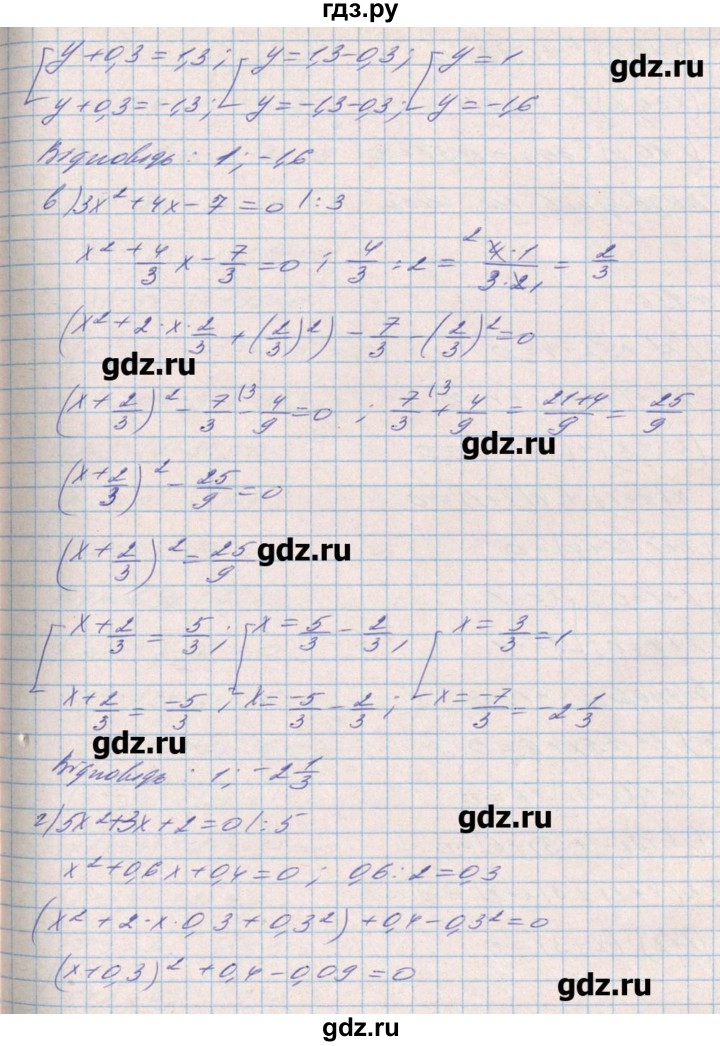 гдз.ру
[ y + 0,3 = 1,3 ; [ y = 1,3 - 0,3 ; [ y = 1
gdz.ru
y + 0,3 = -1,3 ; y = -1,3 - 0,3 ; y = -1,6
Відповідь : 1 ; -1,6
в) 3x² + 4x - 7 = 0 | : 3
x² + 4/3 x - 7/3 = 0 ; 4/3 : 2 = ² 4 · 1 / 3 · 2 ₁ = 2/3
(x² + 2 · x · 2/3 + (2/3)²) - 7/3 - (2/3)² = 0
gdz.ru
(x + 2/3)² - 7/3 (3 - 4/9 = 0 ; 7/3 (3 + 4/9 = 21+4/9 = 25/9
gdz.ru
(x + 2/3)² - 25/9 = 0
(x + 2/3)² = 25/9
gdz.ru
[ x + 2/3 = 5/3 ; [ x = 5/3 - 2/3 , [ x = 3/3 = 1
x + 2/3 = -5/3 ; x = -5/3 - 2/3 ; x = -7/3 = -2 1/3
gdz.ru
Відповідь : 1 ; -2 1/3
г) 5x² + 3x + 2 = 0 | : 5
gdz.ru
x² + 0,6x + 0,4 = 0 ; 0,6 : 2 = 0,3
(x² + 2 · x · 0,3 + 0,3²) + 0,4 - 0,3² = 0
(x + 0,3)² + 0,4 - 0,09 = 0
gdz.ru
gdz.ru